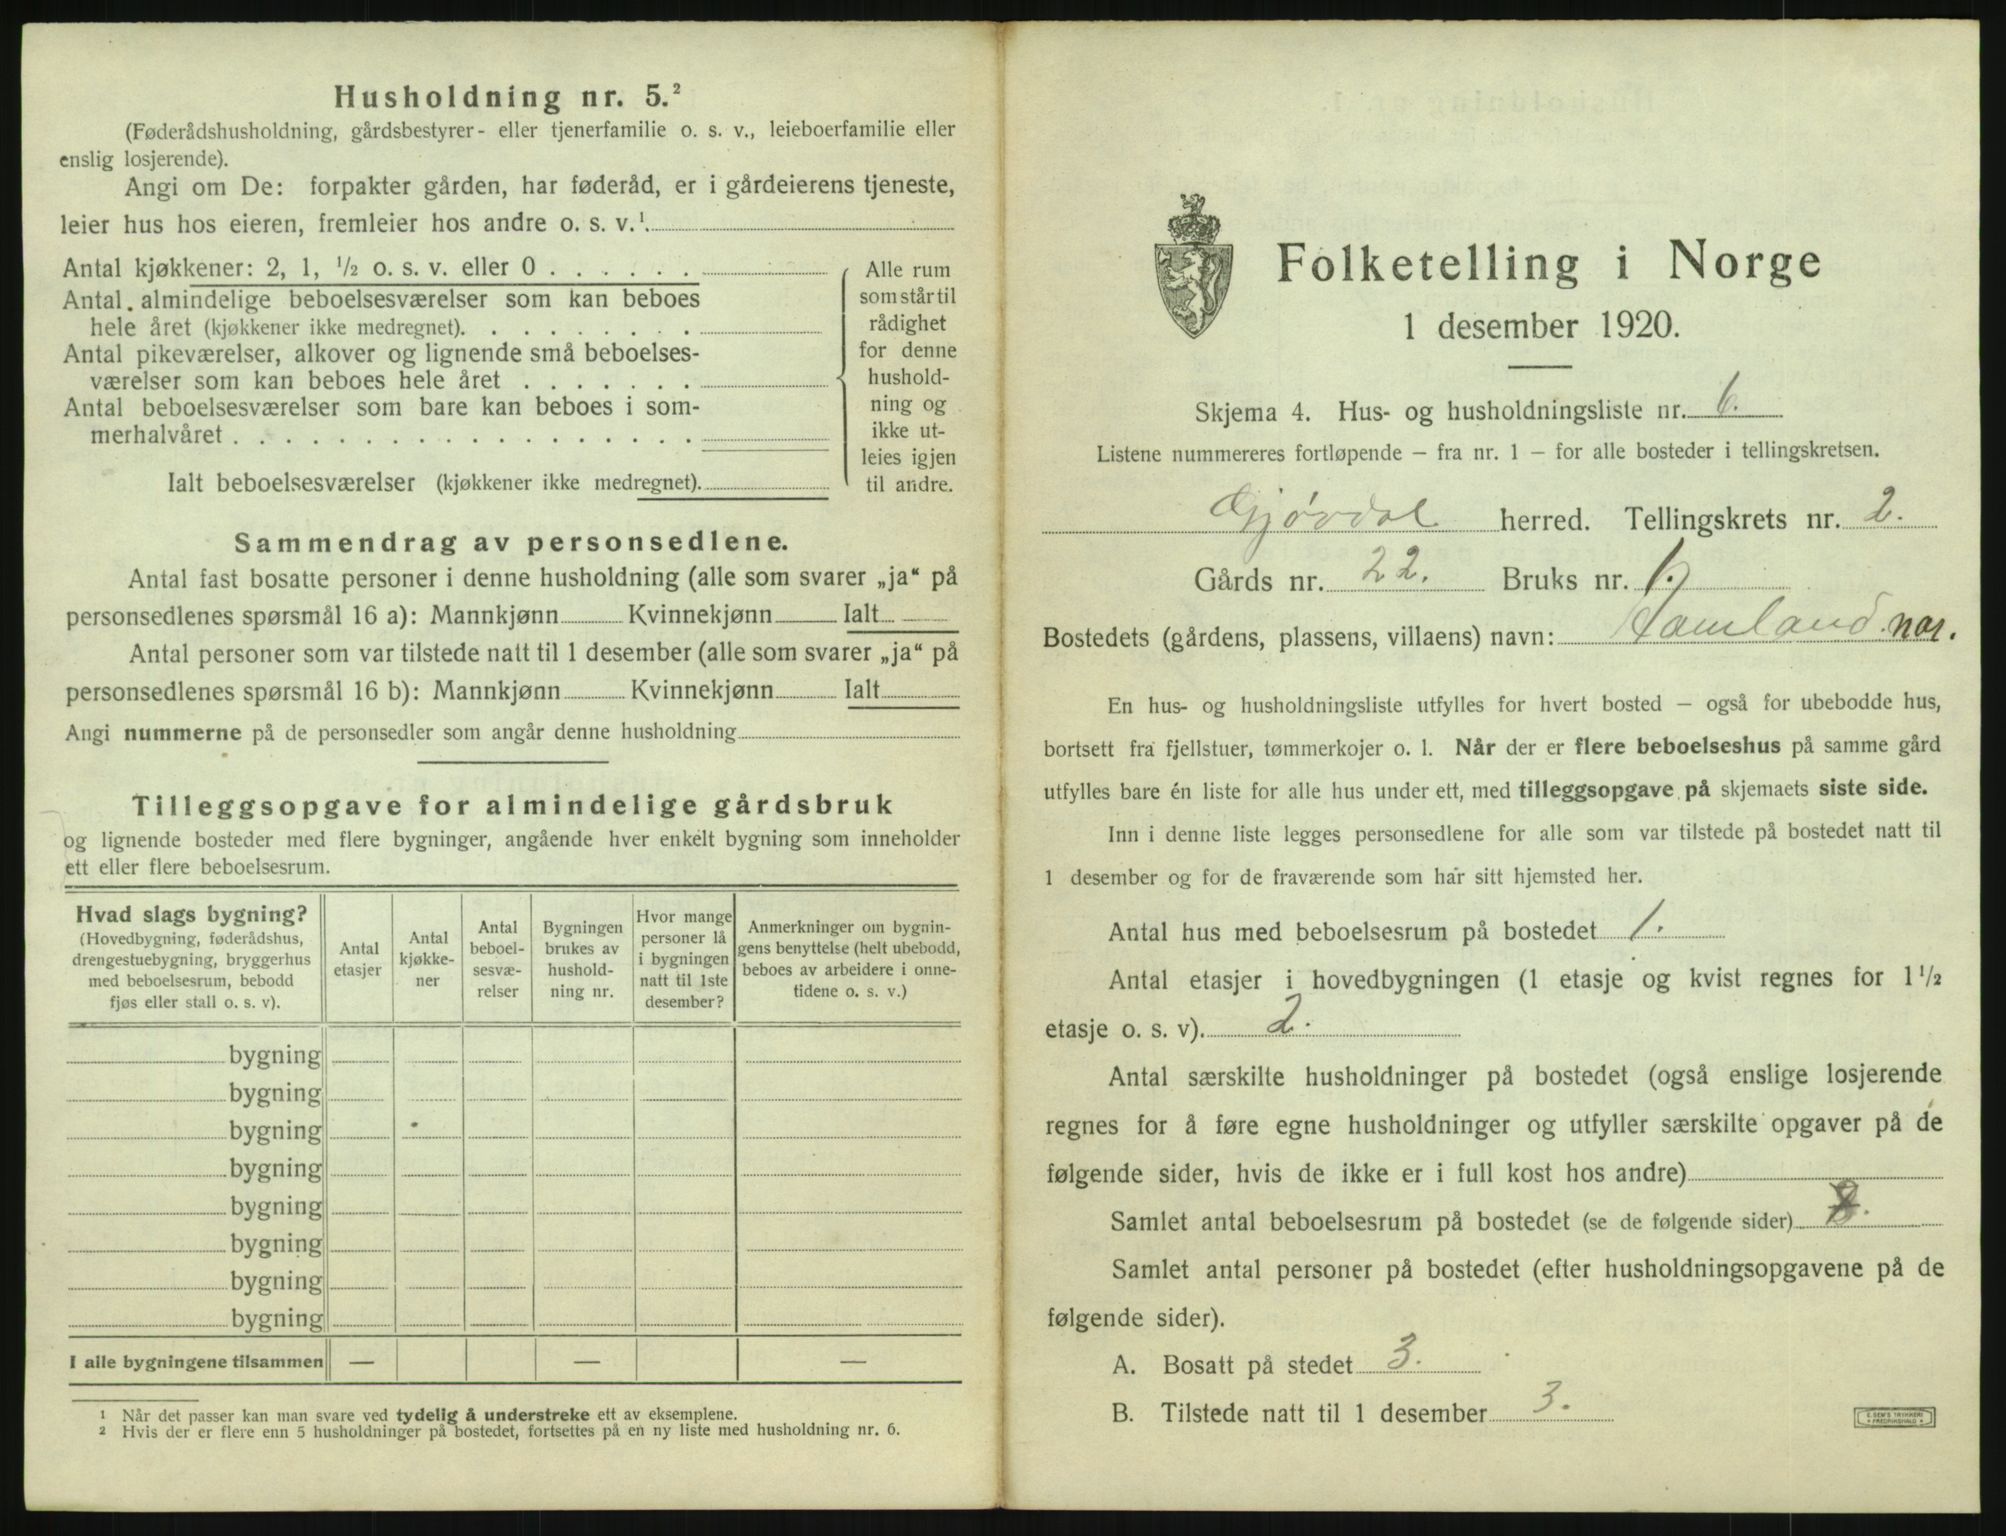 Husholdning nr. 5.²
(Føderådshusholdning, gårdsbestyrer- eller tjenerfamilie o. s. v., leieboerfamilie eller
enslig losjerende).
Angi om De: forpakter gården, har føderåd, er i gårdeierens tjeneste,
leier hus hos eieren, fremleier hos andre o. s. v.¹
Antal kjøkkener: 2, 1, ½ o. s. v. eller 0 . . . . . .
Antal almindelige beboelsesværelser som kan beboes
hele året (kjøkkener ikke medregnet). . . . . . . . .
Antal pikeværelser, alkover og lignende små beboelses-
værelser som kan beboes hele året . . . . . . .
Antal beboelsesværelser som bare kan beboes i som-
merhalvåret . . . . . . . . . . . . . . . . . .
Ialt beboelsesværelser (kjøkkener ikke medregnet).
Alle rum
som står til
rådighet
for denne
hushold-
ning og
ikke ut-
leies igjen
til andre.
Sammendrag av personsedlene.
Antal fast bosatte personer i denne husholdning (alle som svarer „ja“ på
personsedlenes spørsmål 16 a): Mannkjønn Kvinnekjønn Ialt
Antal personer som var tilstede natt til 1 desember (alle som svarer „ja“ på
personsedlenes spørsmål 16 b): Mannkjønn Kvinnekjønn Ialt
Angi nummerne på de personsedler som angår denne husholdning
Tilleggsopgave for almindelige gårdsbruk
og lignende bosteder med flere bygninger, angående hver enkelt bygning som inneholder
ett eller flere beboelsesrum.
Hvad slags bygning?
(Hovedbygning, føderådshus,
drengestuebygning, bryggerhus
med beboelsesrum, bebodd
fjøs eller stall o. s. v).
Antal
etasjer
Antal
kjøkke-
ner
Antal
beboel-
sesvæ-
relser
Bygningen
brukes av
hushold-
ning nr.
Hvor mange
personer lå
i bygningen
natt til 1ste
desember?
Anmerkninger om bygnin-
gens benyttelse (helt ubebodd,
beboes av arbeidere i onne-
tidene o. s. v.)
bygning
bygning
bygning
bygning
bygning
bygning
bygning
bygning
I alle bygningene tilsammen — — —
¹ Når det passer kan man svare ved tydelig å understreke ett av eksemplene.
² Hvis der er flere enn 5 husholdninger på bostedet, fortsettes på en ny liste med husholdning nr. 6.
Folketelling i Norge
1 desember 1920.
Skjema 4. Hus- og husholdningsliste nr. 6.
Listene nummereres fortløpende – fra nr. 1 – for alle bosteder i tellingskretsen.
Gjøvdal herred. Tellingskrets nr. 2.
Gårds nr. 22. Bruks nr. 1.
Bostedets (gårdens, plassens, villaens) navn: Ramland nor.
En hus- og husholdningsliste utfylles for hvert bosted – også for ubebodde hus,
bortsett fra fjellstuer, tømmerkojer o. l. Når der er flere beboelseshus på samme gård
utfylles bare én liste for alle hus under ett, med tilleggsopgave på skjemaets siste side.
Inn i denne liste legges personsedlene for alle som var tilstede på bostedet natt til
1 desember og for de fraværende som har sitt hjemsted her.
Antal hus med beboelsesrum på bostedet 1.
Antal etasjer i hovedbygningen (1 etasje og kvist regnes for 1 ½
etasje o. s. v). 2.
Antal særskilte husholdninger på bostedet (også enslige losjerende
regnes for å føre egne husholdninger og utfyller særskilte opgaver på de
følgende sider, hvis de ikke er i full kost hos andre)
Samlet antal beboelsesrum på bostedet (se de følgende sider)
Samlet antal personer på bostedet (efter husholdningsopgavene på de
følgende sider).
A. Bosatt på stedet 3.
B. Tilstede natt til 1 desember 3.
E. SEM'S TRYKKERI
FREDRIKSHALD